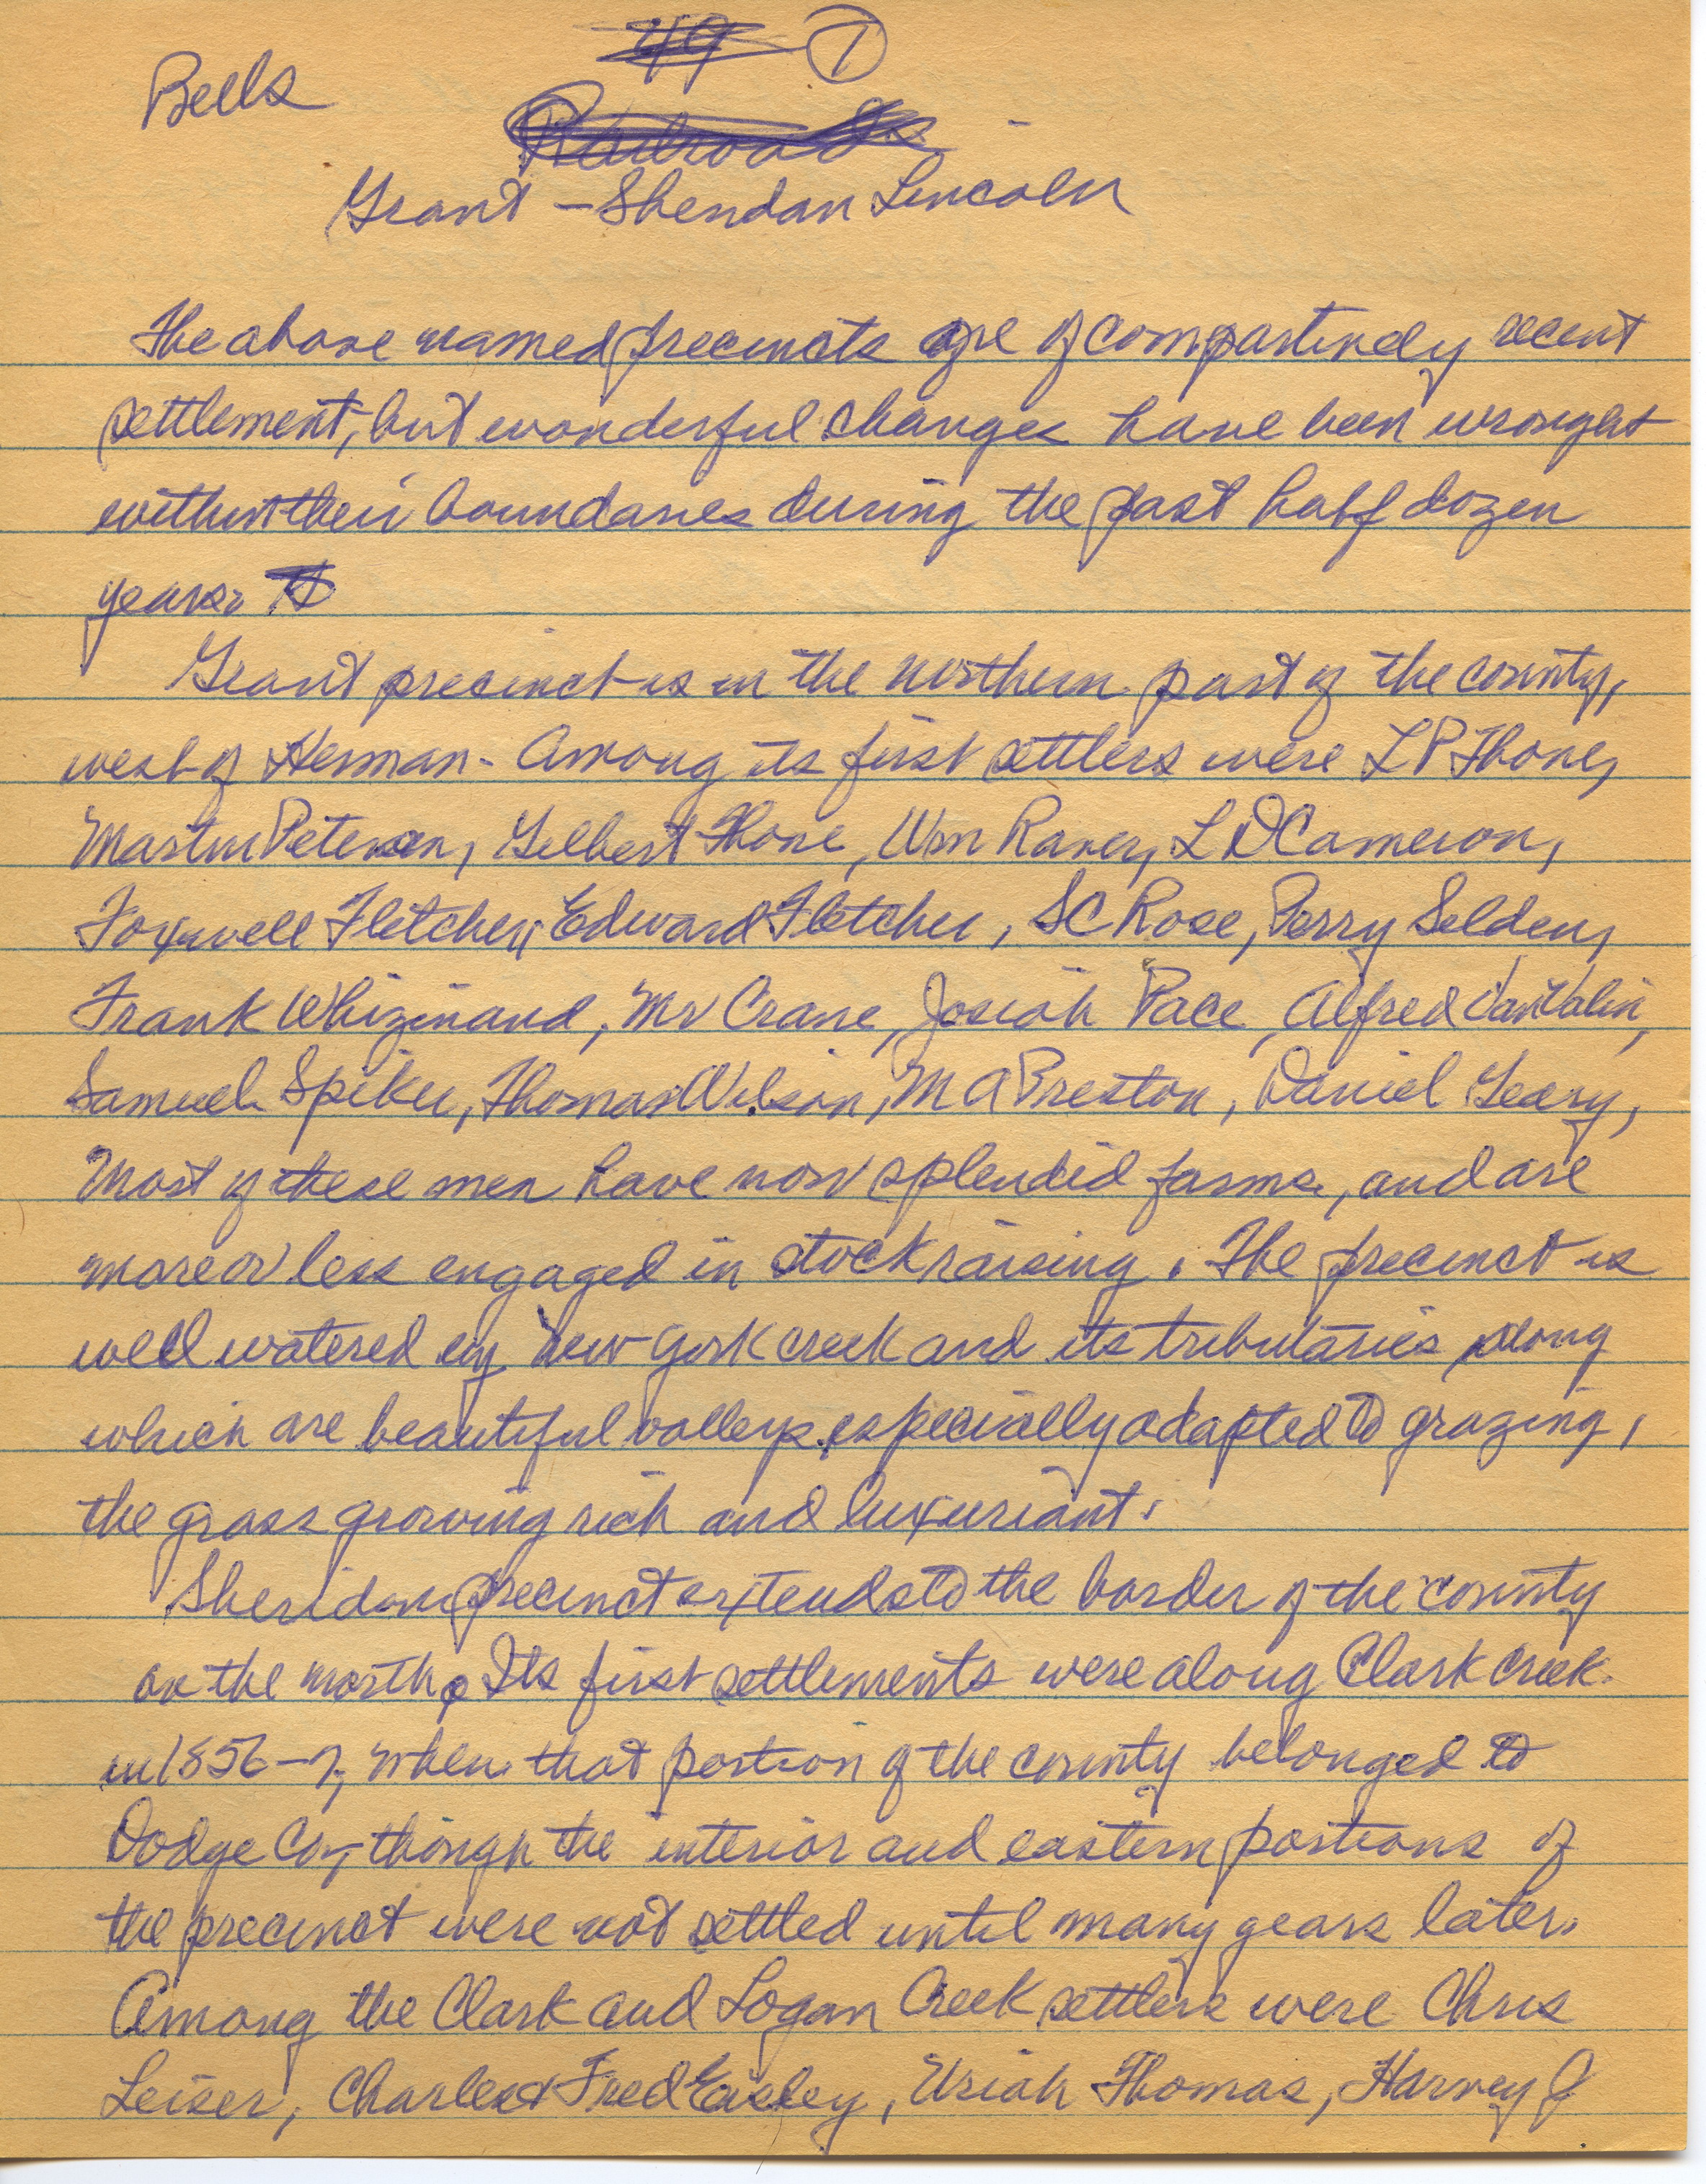 49 1
Bells
Railroads
Grant - Sheridan Lincoln
The above named precincts are of compartively recent
settlement, but wonderful changes have been wrought
within their boundaries during the past half dozen
years.
Grant precinct is in the northern part of the county,
west of Herman - Among its first settlers were L P Thone,
Martin Petersen, Gilbert Thone, Wm Raney, L D Cameron,
Foxwell Fletcher, Edward Fletcher, S C Rose, Perry Selden,
Frank Whizinand, Mr Crane, Josiah Pace, Alfred Van Valin,
Samuel Spiker, Thomas Wilson, M A Preston, Daniel Geary,
Most of these men have now splendid farms, and are
more or less engaged in stock raising. The precinct is
well watered by New York creek and its tributaries along
which are beautiful valleys, especially adapted to grazing,
the grass growing rich and luxuriant.
Sheridan precinct extends to the border of the county
on the north. Its first settlements were along Clark creek
in 1856-7, when that portion of the county belonged to
Dodge Co, though the interior and eastern portions of
the precinct were not settled until many years later.
Among the Clark and Logan Creek settlers were Chris
Leiser, Charles & Fred Eisley, Uriah Thomas, Harvey J